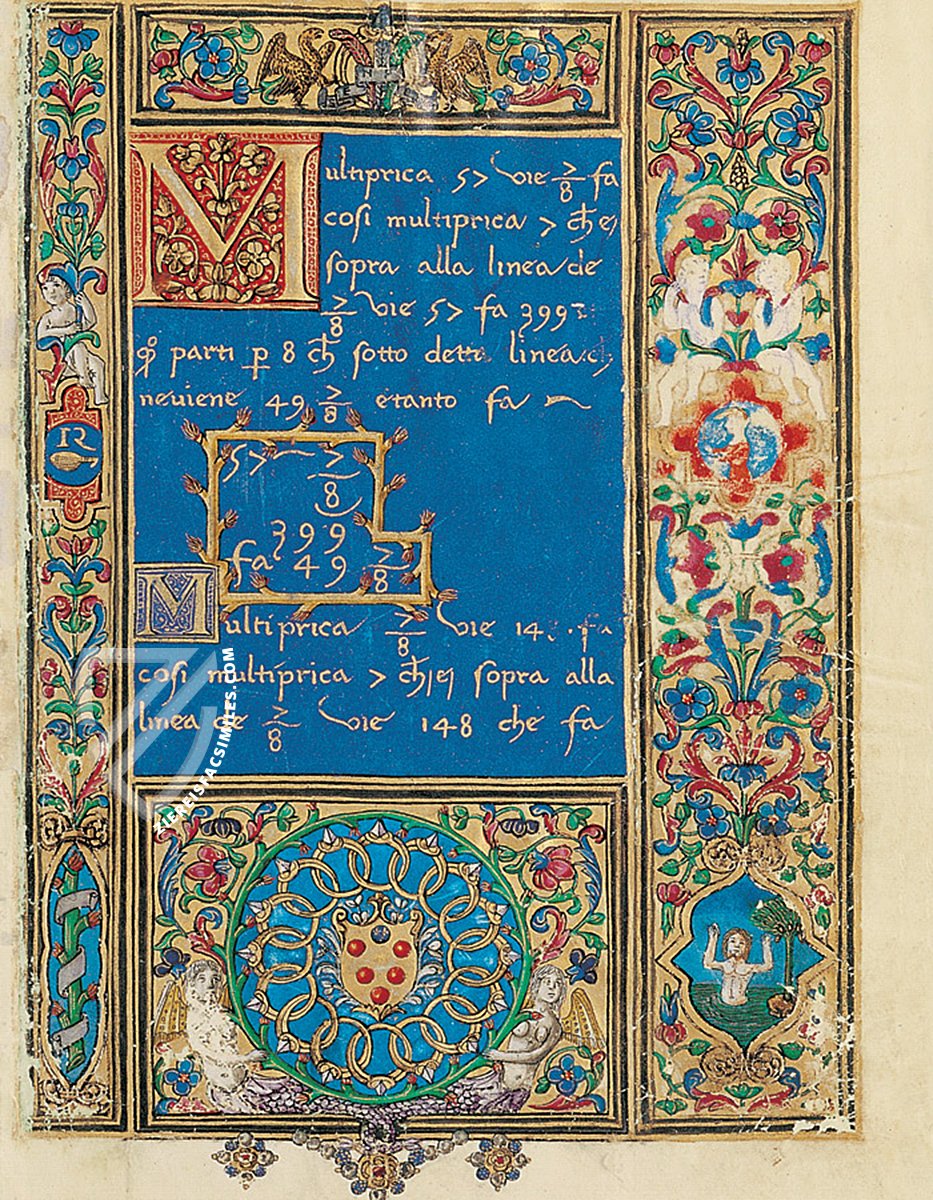 Multiprica 57 vie 7/8 fa
cosi multiprica 7 ch̄ ei
sopra alla linea de
7/8 vie 57 fa 399
parti p̱ 8 ch̄ sotto detta linea
neviene 49 7/8 etanto fa
57 7/8
399
fa 49 7/8
Multiprica 7/8 vie 148 fa
cosi multiprica 7 ch̄ iei sopra alla
linea de 7/8 vie 148 che fa
R
ZIEREISFACSIMILES.COM